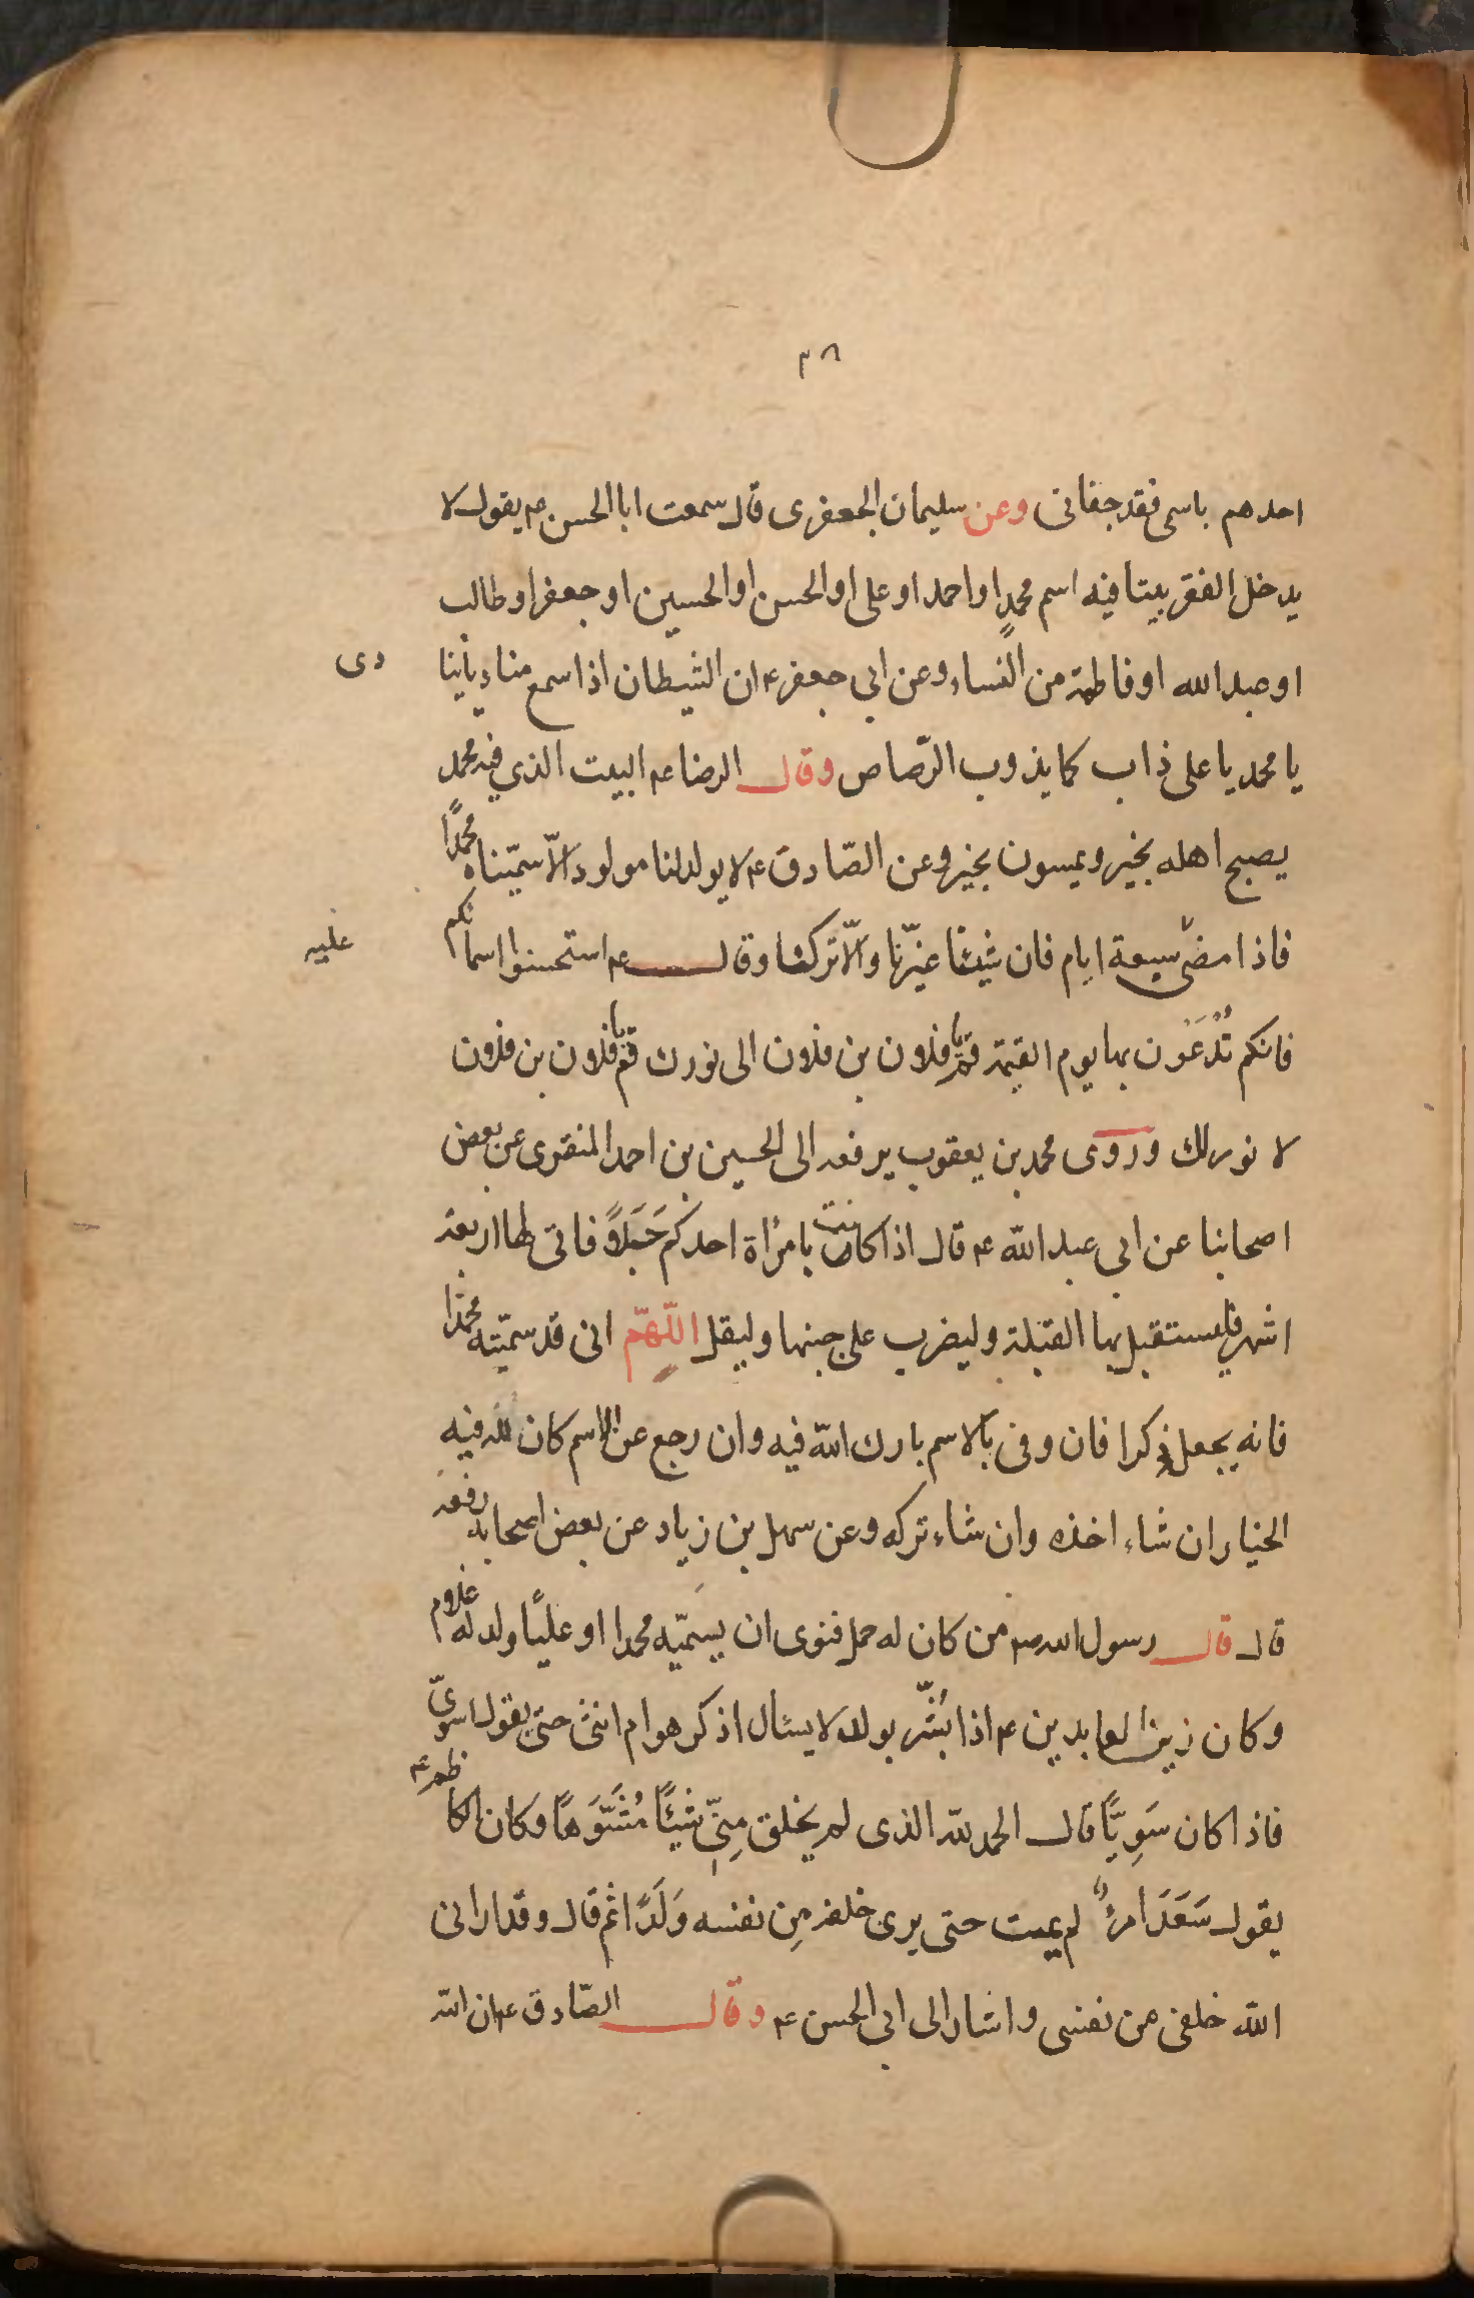 ٣٨
احدهم باسمى فقد جفانى وعن سليمان الجعفرى قال سمعت ابا الحسن ع م يقول لا
يدخل الفقر بيتا فيه اسم محمدٍ او احمد او على او الحسن او الحسين او جعفر او طالب
او عبد الله او فاطمة من النساء وعن ابى جعفر ع ان الشيطان اذا سمع مناديا ينا
دى
يا محمد يا على ذاب كما يذوب الرّصاص وقال الرضا ع م البيت الذي فيه محمد
يصبح اهله بخير ويمسون بخير وعن الصّادق ع م لا يولد لنا مولود الّا سمّيناه محمدًا
فاذا مضى سبعة ايام فان شئنا غيّرنا والّا تركنا وقال ع م استحسنوا اسمائكم
عليه
فانكم تُدْعَوْن بها يوم القيمة قم يا فلان بن فلان الى نورك قم يا فلان بن فلان
لا نور لك وروى محمد بن يعقوب يرفعه الى الحسين بن احمد المنقرى عن بعض
اصحابنا عن ابى عبد الله ع قال اذا كانت بامرأة احدكم حَبَلاً فاتى لها اربعة
اشهر فليستقبل بها القبلة وليضرب على جنبها وليقل اللّهمّ انى قد سمّيته محمدا
فانه يجعل ذكرا فان وفى بالاسم بارك الله فيه وان رجع عن الاسم كان لله فيه
الخيار ان شاء اخذه وان شاء تركه وعن سهل بن زياد عن بعض اصحابه رفعه
قال قال رسول الله ص من كان له حمل فنوى ان يسمّيه محمدا او عليًا ولد له غلام
وكان زين العابدين ع م اذا بُشّر بولد لا يسئال اذكر هو ام انثى حتى يقول اسوىّ
فاذا كان سَوِيًّا قال الحمد لله الذى لم يخلق مِنّى شيئًا مُشَوَّهًا وكان الكاظم ع
يقول سَعَدَ امرءٌ لم يمت حتى يرى خلفه مِن نفسه وَلَدًا ثم قال وقد ارانى
الله خلفى من نفسى واشار الى ابى الحسن ع م وقال الصّادق ع م ان الله